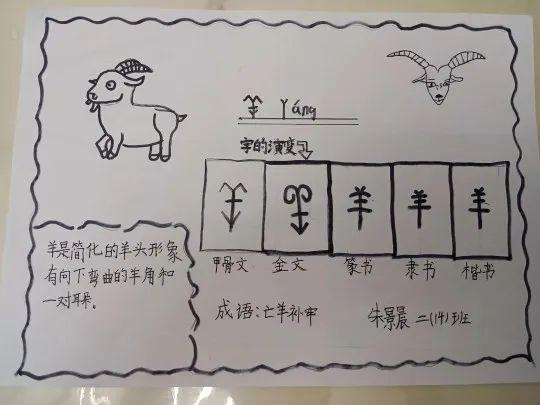 羊 Yáng
字的演变
羊 羊 羊
甲骨文 金文 篆书 隶书 楷书
羊是简化的羊头形象
有向下弯曲的羊角和
一对耳朵。
成语:亡羊补牢
朱景晨 二(14)班